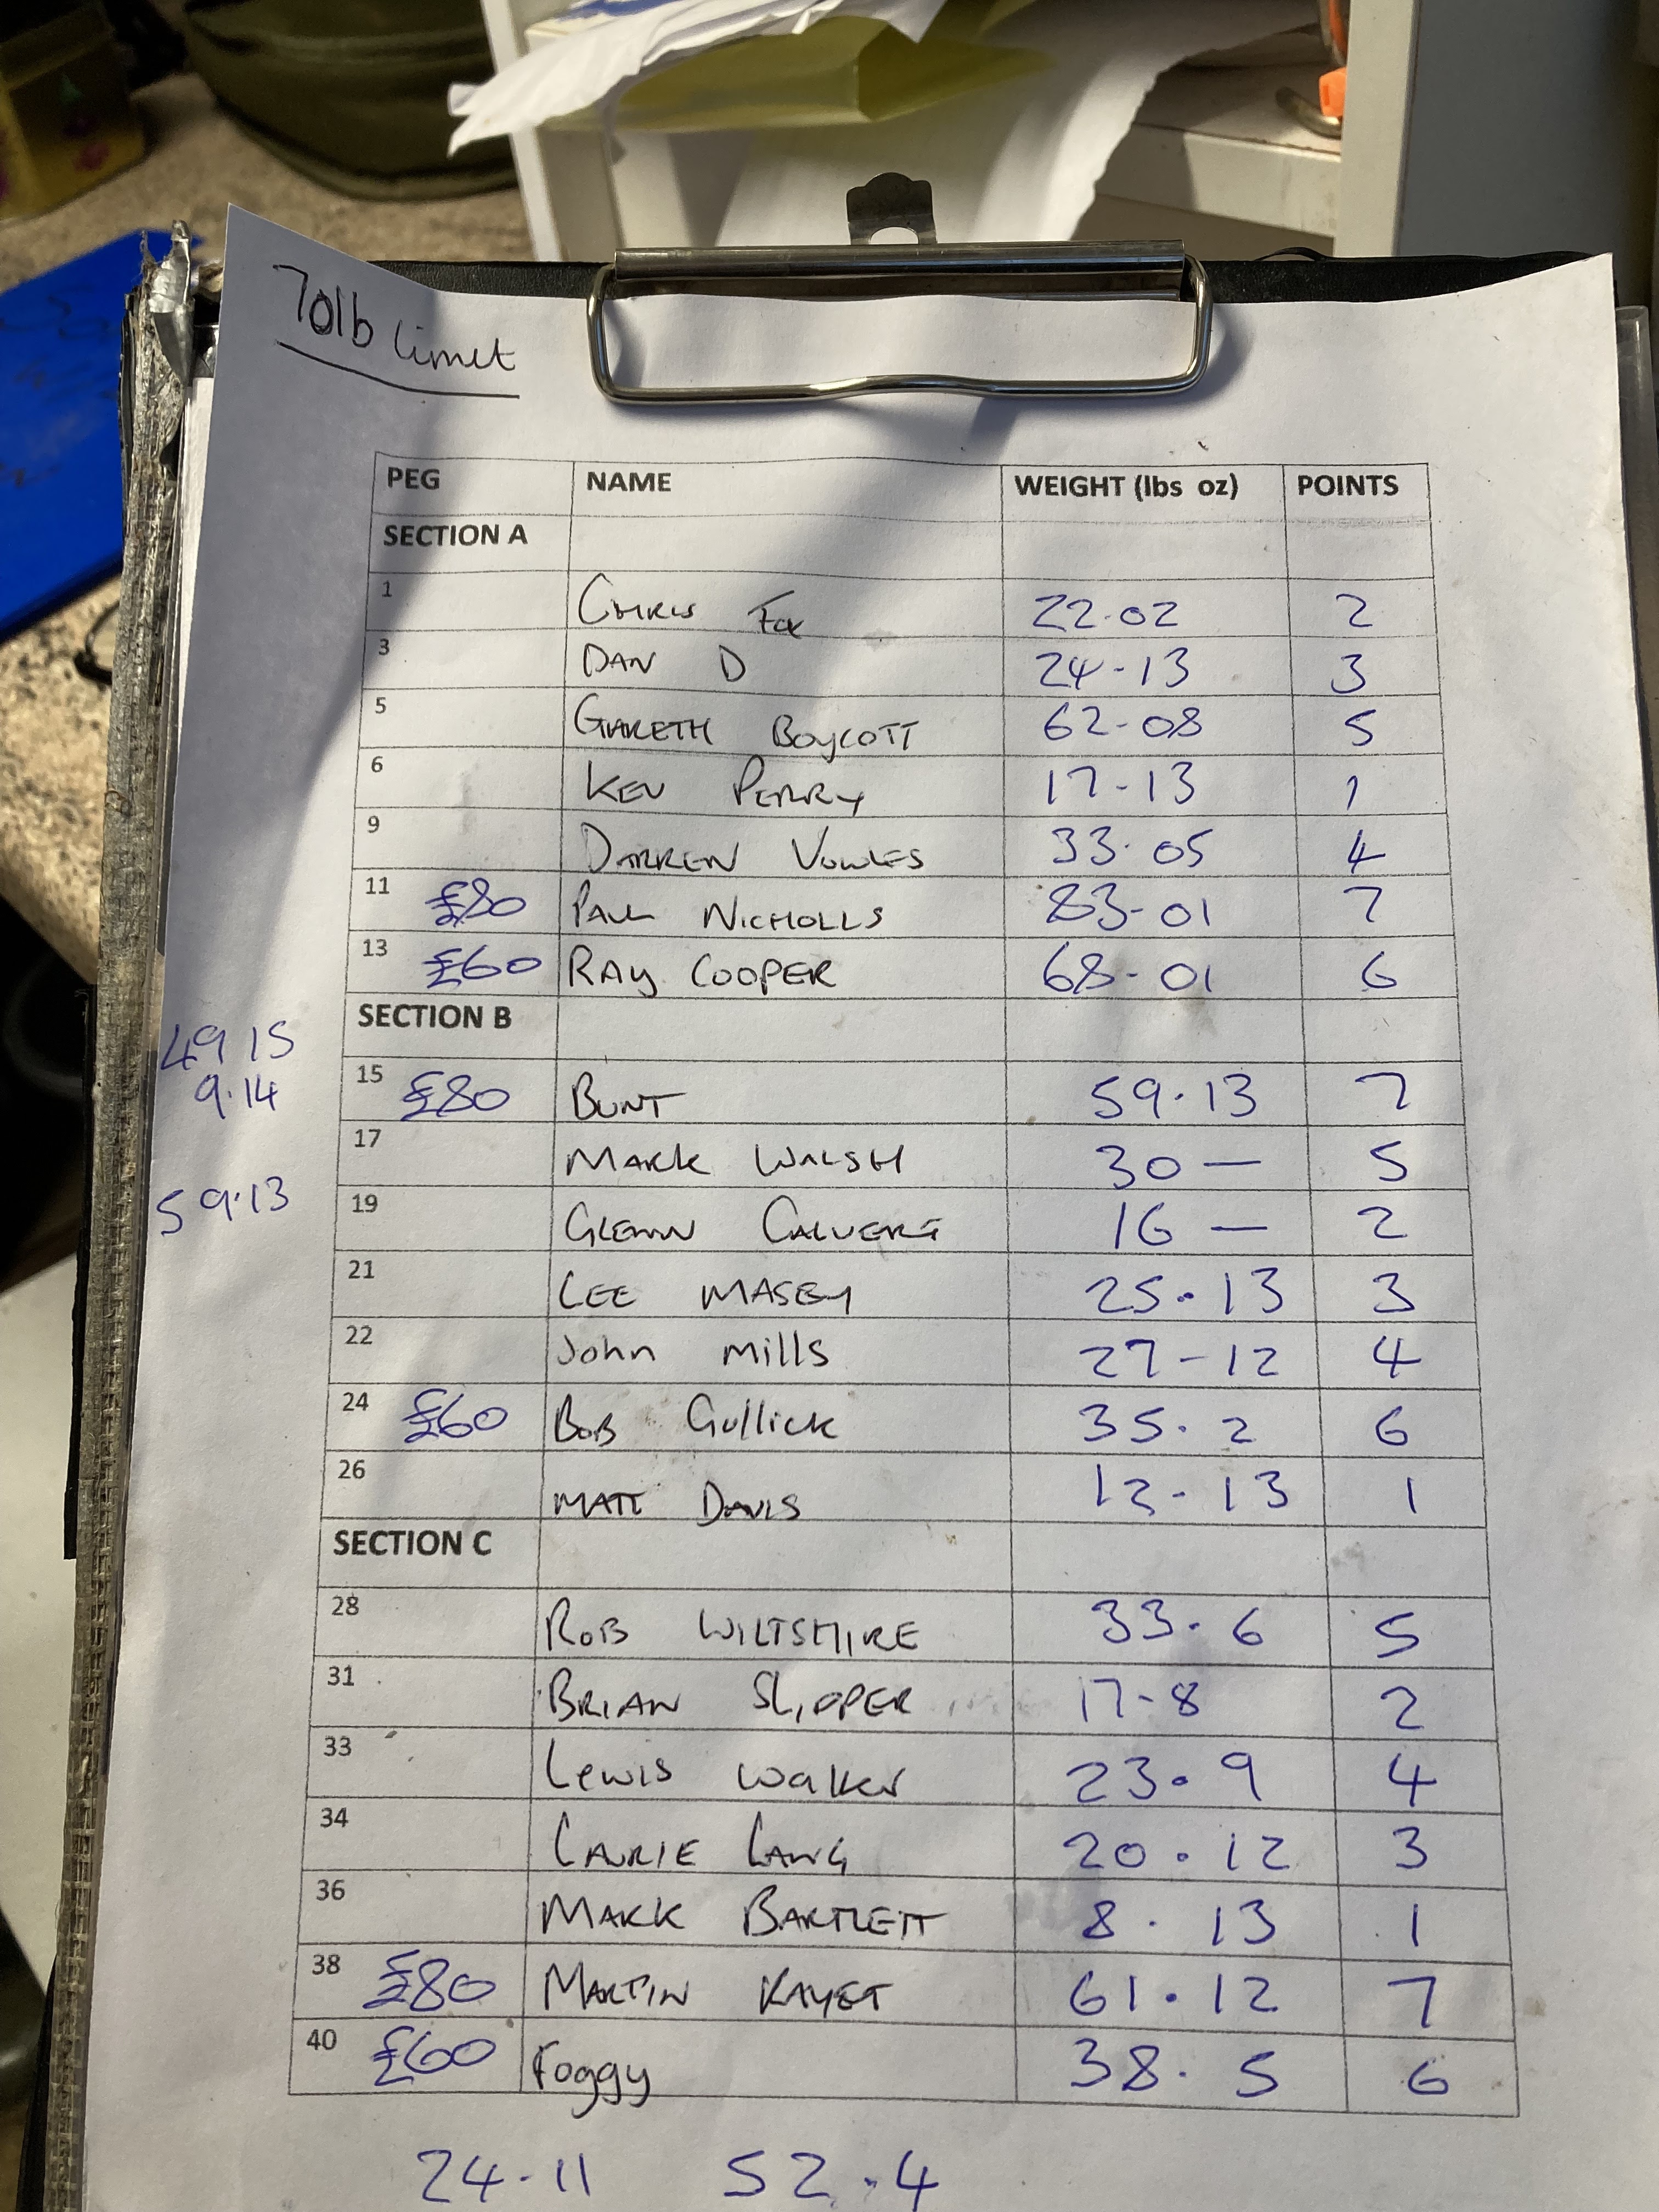 70lb limit
PEG NAME WEIGHT (lbs oz) POINTS
SECTION A
1 CHRIS Fox 22.02 2
3 DAN D 24-13 3
5 GARETH BOYCOTT 62-08 5
6 KEV PERRY 17-13 1
9 DARREN VOWLES 33.05 4
11 £80 PAUL NICHOLLS 83-01 7
13 £60 RAY COOPER 68-01 6
SECTION B
49 15
9.14
15 £80 BUNT 59.13 7
17 MARK WALSH 30 — 5
59.13
19 GLENN CALVERT 16 — 2
21 LEE MASEY 25.13 3
22 John mills 27-12 4
24 £60 BOB Gullick 35.2 6
26 MATT DAVIS 12-13 1
SECTION C
28 ROB WILTSHIRE 33.6 5
31 BRIAN SLIPPER 17-8 2
33 Lewis Walker 23.9 4
34 LAURIE LANG 20.12 3
36 MARK BARTLETT 8.13 1
38 £80 MARTIN KAYET 61.12 7
40 £60 Foggy 38.5 6
24.11 52.4